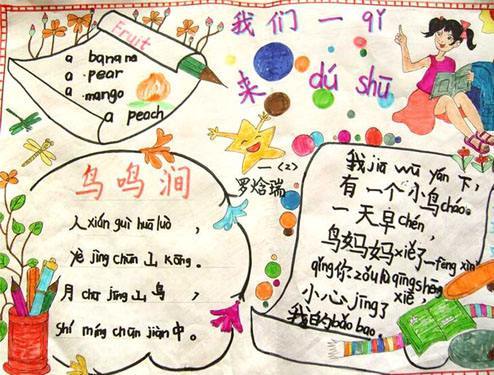 我们一qǐ
来 dú shū
Fruit
a banana
a pear
a mango
a peach
一(2)
罗焓瑞
鸟鸣涧
人xián guì huā luò，
yè jìng chūn 山 kōng。
月 chū jīng 山 鸟，
shí míng chūn jiàn 中。
我jiā wū yán 下，
有一个小鸟cháo。
一天早chén，
鸟妈妈xiě了一fēng xìn
qǐng你zǒu lù qīng shēng
xiē，
小心jīng了
我的bǎo bao。